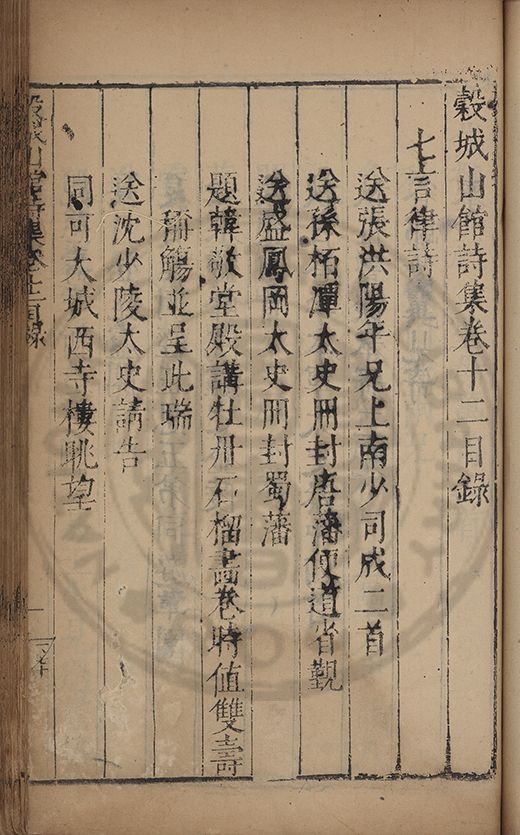 穀城山館詩集卷十二目錄
七言律詩
送張洪陽年兄上南少司成二首
送孫柘潭太史冊封唐藩便道省覲
送盛鳳岡太史冊封蜀藩
題韓敬堂殿講牡丹石榴畫卷時值雙壽
稱觴並呈此瑞
送沈少陵太史請告
同可大城西寺樓眺望
穀城山館詩集卷十二目錄
一